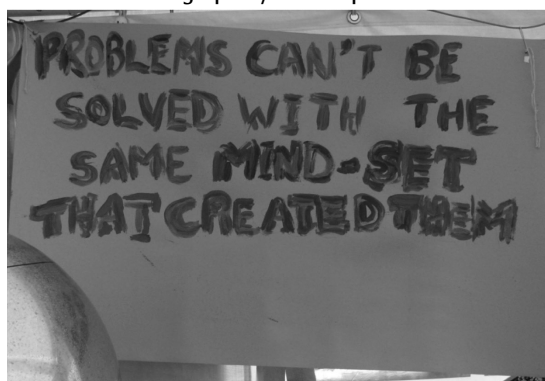 PROBLEMS CAN'T BE
SOLVED WITH THE
SAME MIND-SET
THAT CREATED THEM